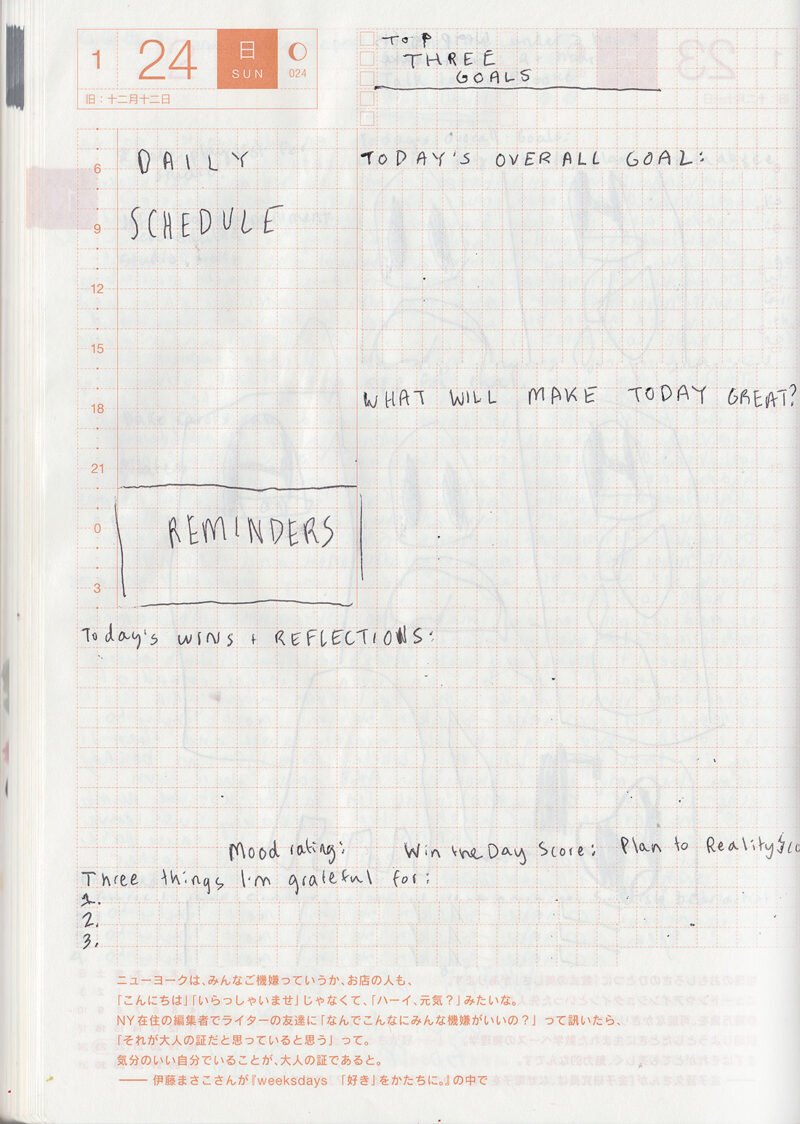 1 24 日 SUN 024
旧：十二月十二日
TOP
THREE
GOALS
6
DAILY
SCHEDULE
9
12
15
18
21
0
3
TODAY'S OVERALL GOAL:
WHAT WILL MAKE TODAY GREAT?
REMINDERS
Today's WINS + REFLECTIONS:
Mood rating: Win the Day Score: Plan to Reality Sco
Three things I'm grateful for:
1.
2.
3.
ニューヨークは、みんなご機嫌っていうか、お店の人も、
「こんにちは」「いらっしゃいませ」じゃなくて、「ハーイ、元気？」みたいな。
NY在住の編集者でライターの友達に「なんでこんなにみんな機嫌がいいの？」って訊いたら、
「それが大人の証だと思っていると思う」って。
気分のいい自分でいることが、大人の証であると。
── 伊藤まさこさんが『weeksdays 「好き」をかたちに。』の中で